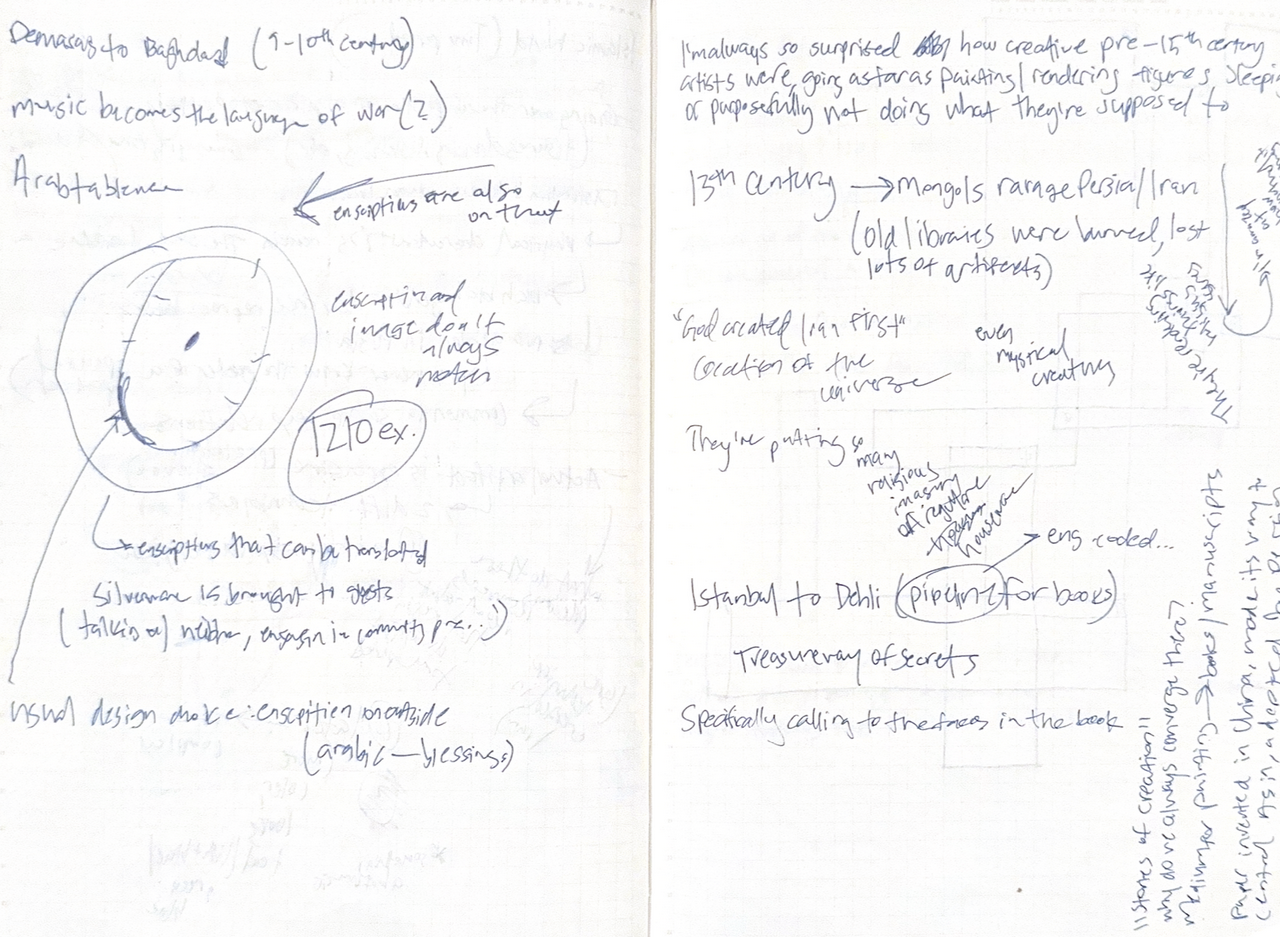 Demascus to Baghdad (9-10th century)
music becomes the language of war (2)
Arab
enscriptions are also
on that
enscription and
image don't
always
match
1210 ex.
enscriptions that can be translated
Silverware is brought to guests
(talking w/ engage in
usual design choice: enscription on outside
(arabic — blessings)
I'm always so surprised how creative pre-15th century
artists were, going as far as painting/rendering figures sleeping
or purposefully not doing what they're supposed to
13th century → Mongols ravage Persia/Iran
(Old libraries were burned, lost
lots of artifacts)
"God created Iran first"
Creation of the
universe
even
mystical
creatures
They're putting so
many
religious
imagery
on regular
houseware
eng coded...
Istanbul to Dehli (pipeline for books)
Treasureray of secrets
Specifically calling to the faces in the book
"stories of creation"
why do we always converge there?
miniature painting → books/manuscripts
Paper invented in China, made its way to
Central Asia, adopted by